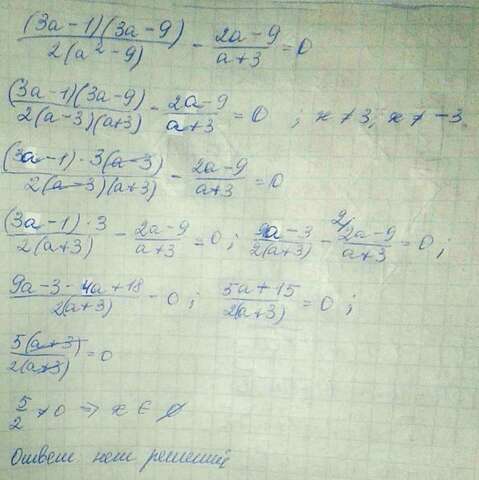 (3a-1)(3a-9)/2(a²-9) - 2a-9/a+3 = 0
(3a-1)(3a-9)/2(a-3)(a+3) - 2a-9/a+3 = 0 ; x ≠ 3; x ≠ -3
(3a-1)·3(a-3)/2(a-3)(a+3) - 2a-9/a+3 = 0
(3a-1)·3/2(a+3) - 2a-9/a+3 = 0 ; 9a-3/2(a+3) - 2/2a-9/a+3 = 0 ;
9a-3-4a+18/2(a+3) = 0 ; 5a+15/2(a+3) = 0 ;
5(a+3)/2(a+3) = 0
5/2 ≠ 0 => x ∈ ∅
Ответ нет решений